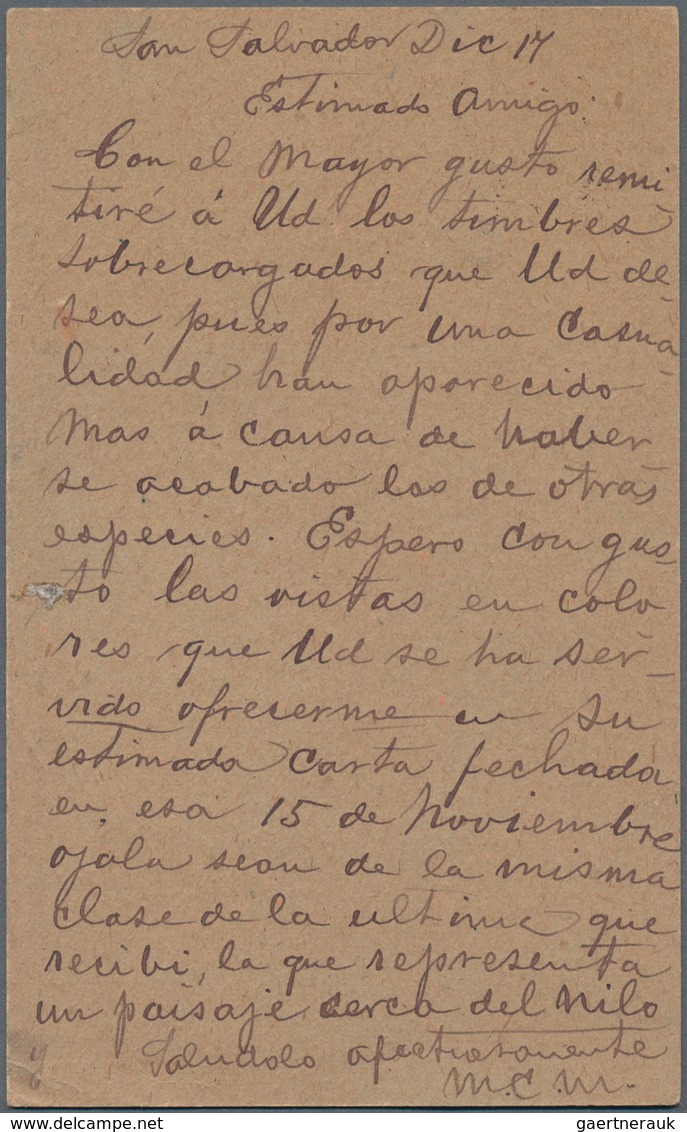 San Salvador Dic 17
Estimado Amigo:
Con el Mayor gusto remi-
tiré á Ud los timbres
sobrecargados que Ud de-
sea, pues por una Casua-
lidad han aparecido
Mas á causa de haber
se acabado los de otras
especies. Espero con gus-
to las vistas en colo
res que Ud se ha ser-
vido ofrecerme en su
estimada carta fechada
en esa 15 de Noviembre
ojala sean de la misma
clase de la ultima que
recibi, la que representa
un paisaje cerca del Nilo
Saludolo afectuosamente
M.C.M.
www.delcampe.net
gaertnerauk